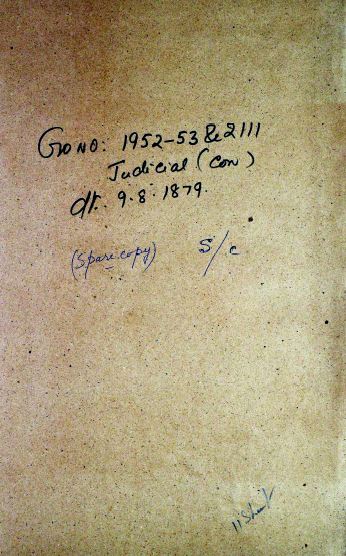 GO NO: 1952-53 & 2111
Judicial (Con)
dt. 9.8.1879.
(Spare copy) S/c